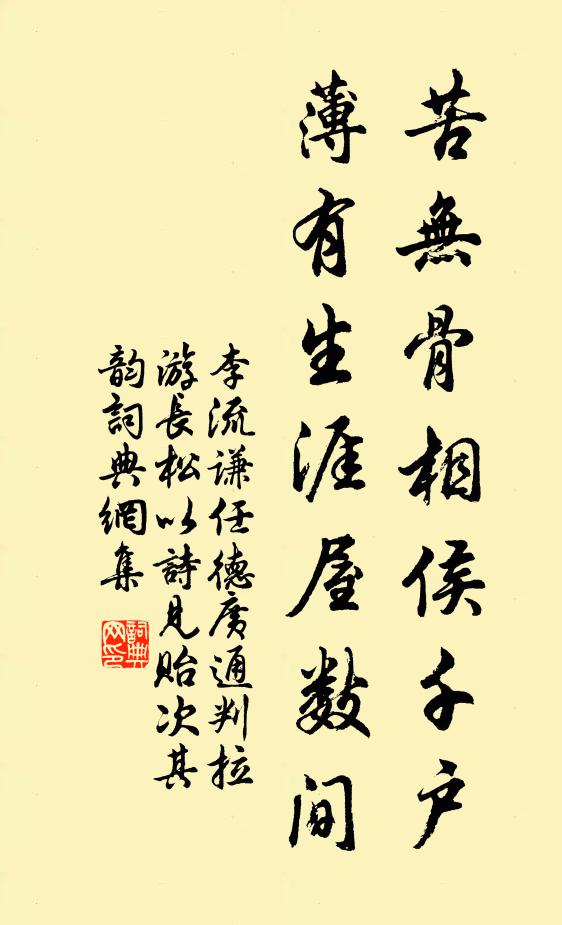 苦無骨相侯千户
薄有生涯屋数间
李流谦任德廣通判拉
游長松以詩見貽次其
韵詞典網集
詞典
网印